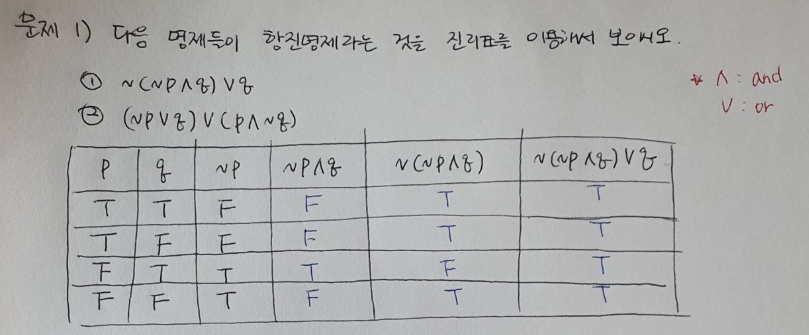 문제 1) 다음 명제들이 항진명제라는 것을 진리표를 이용해서 보이시오.
① ~(~p∧q)∨q
② (~p∨q)∨(p∧~q)
* ∧ : and
∨ : or
P q ~P ~P∧q ~(~P∧q) ~(~P∧q)∨q
T T F F T T
T F F F T T
F T T T F T
F F T F T T